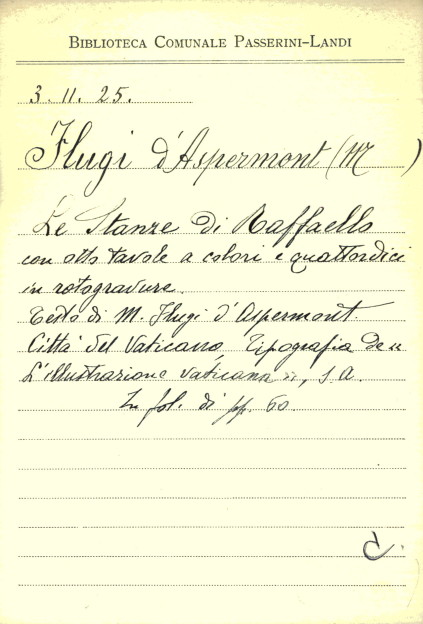 BIBLIOTECA COMUNALE PASSERINI-LANDI
3. 11. 25.
Flugi d'Aspermont (M )
Le Stanze di Raffaello
con otto tavole a colori e quattordici
in rotogravure.
Testo di M. Flugi d'Aspermont.
Città del Vaticano, Tipografia de "
L'illustrazione vaticana ", s a.
In fol. di pp. 60.